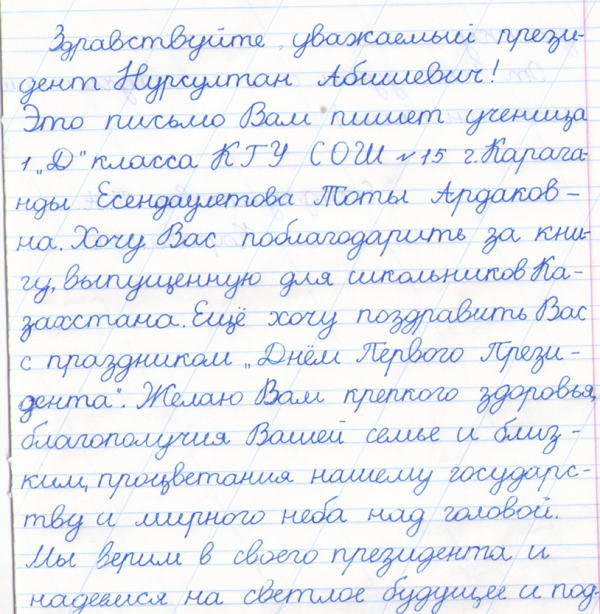 Здравствуйте, уважаемый прези-
дент Нурсултан Абишевич!
Это письмо Вам пишет ученица
1 „Д" класса КГУ СОШ №15 г. Карага-
нды Есендаулетова Тоты Ардаков-
на. Хочу Вас поблагодарить за кни-
гу, выпущенную для школьников Ка-
захстана. Ещё хочу поздравить Вас
с праздником „Днём Первого Прези-
дента". Желаю Вам крепкого здоровья,
благополучия Вашей семье и близ-
ким, процветания нашему государс-
тву и мирного неба над головой.
Мы верим в своего президента и
надеемся на светлое будущее и под-